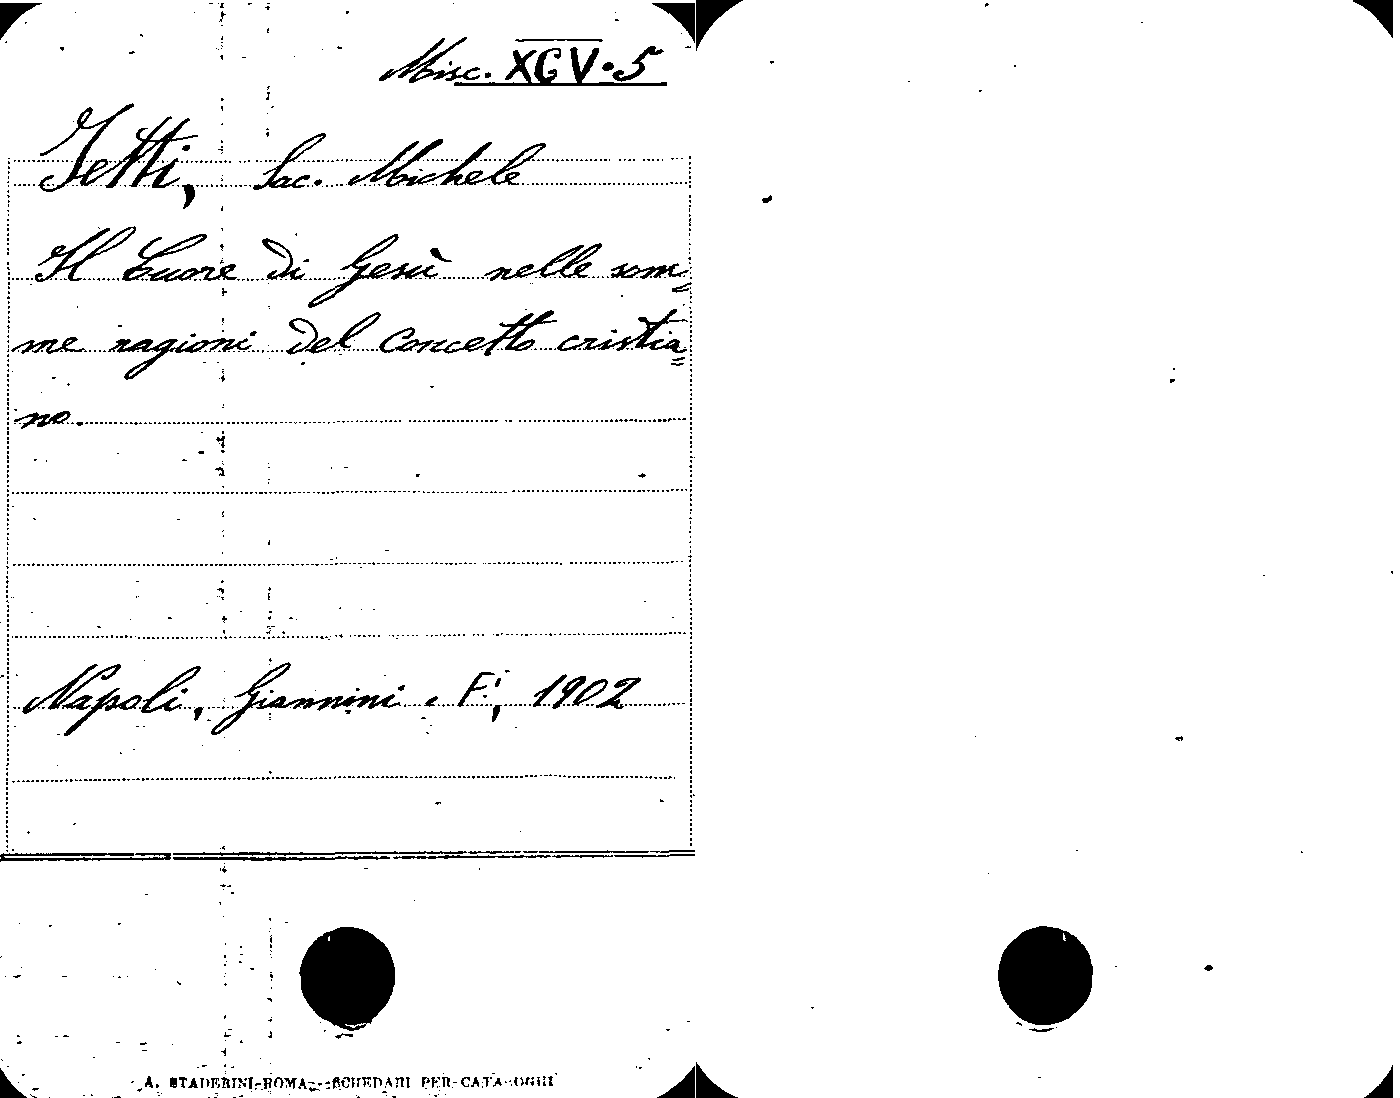 Misc. XCV·5
Jetti, Sac. Michele
Il Cuore di Gesù nelle som=
me ragioni del concetto cristia=
no.
Napoli, Giannini e Fi, 1902
A. STADERINI-ROMA--SCHEDARI PER CATALOGHI